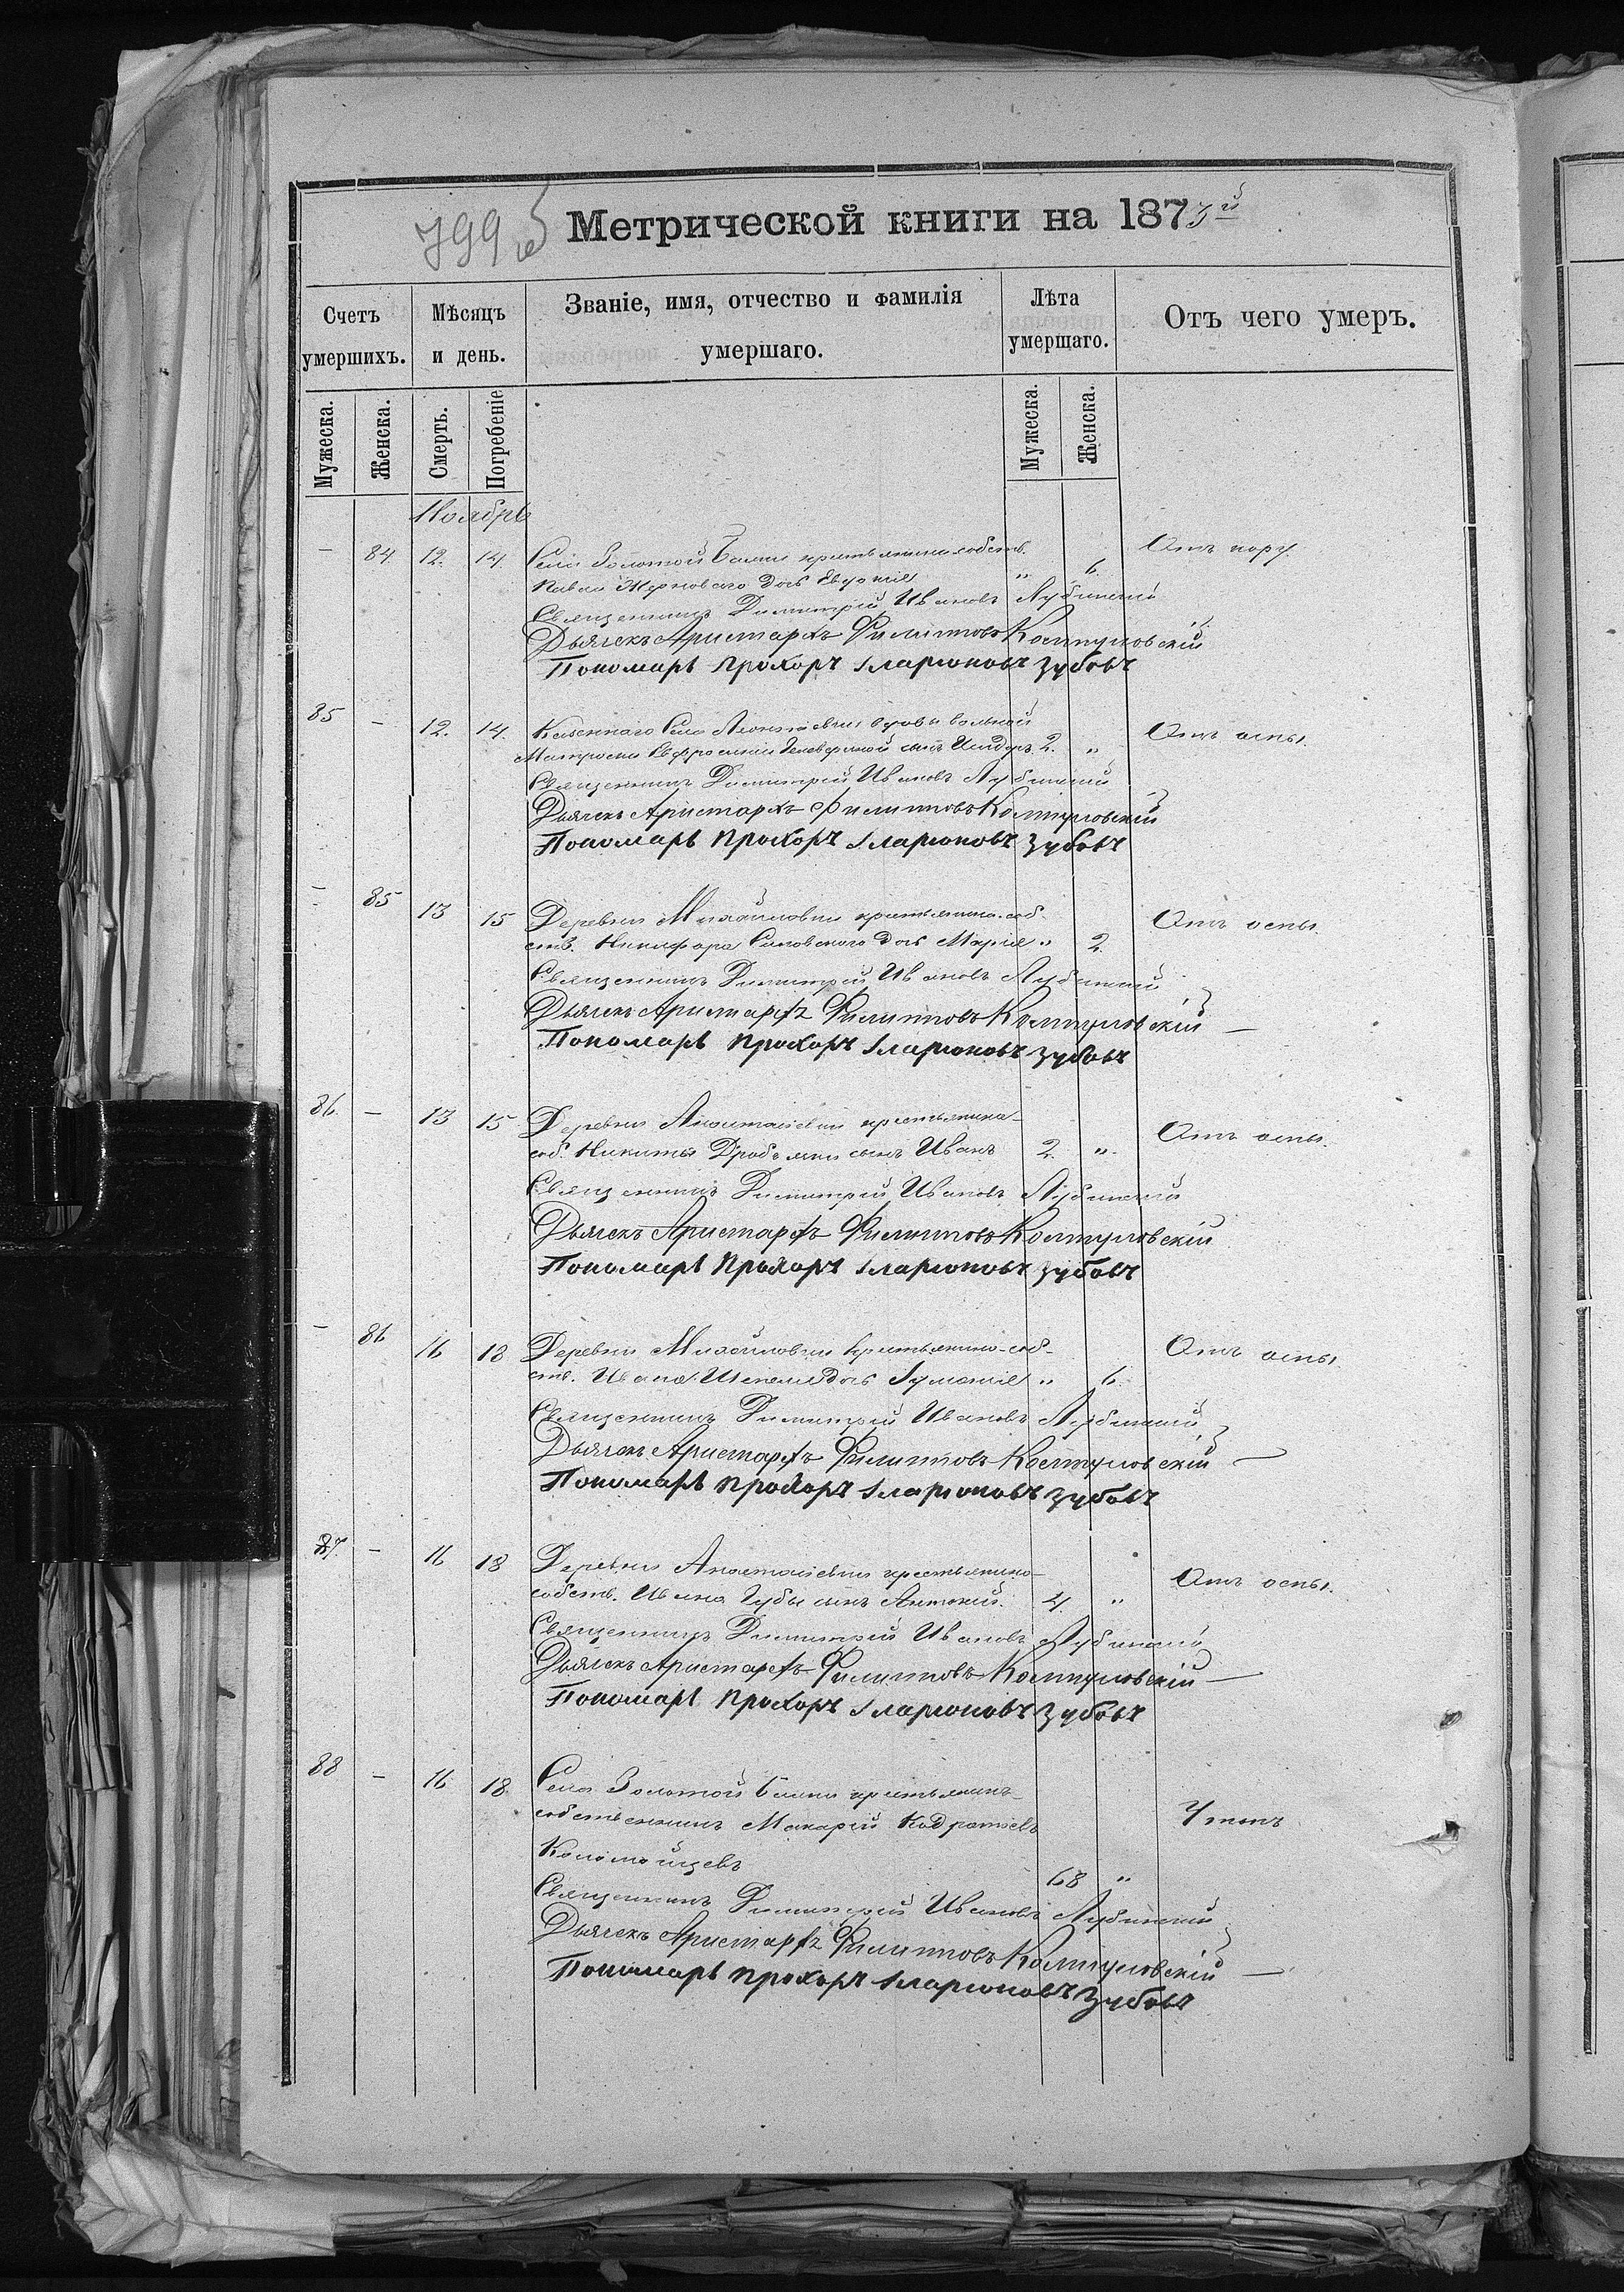 799 об
Метрической книги на 1873й
Счетъ умершихъ.
Мѣсяцъ и день.
Званіе, имя, отчество и фамилія умершаго.
Лѣта умершаго.
Отъ чего умеръ.
Мужеска. Женска. Смерть. Погребеніе Мужеска. Женска.
Ноябрь
– 84 12. 14. Села Золотой Балки крестьянина собств. Отъ
Павла Жерноваго дочь Евдокія „ 6.
Священникъ Димитрій Ивановъ Лубинскій
Дьячекъ Аристархъ Филиповъ Колтуновскій
Пономарь Прохоръ Іларионовъ Зубовъ
85 – 12. 14. Казеннаго Села вдовы вольной Отъ оспы.
Матроски Евфросиніи сынъ Исидоръ 2. „
Священникъ Димитрій Ивановъ Лубинскій
Дьячекъ Аристархъ Филиповъ Колтуновскій
Пономарь Прохоръ Іларионовъ Зубовъ
– 85 13 15 Деревни Михайловки крестьянина-соб- Отъ оспы.
ств. Никифора дочь Марія „ 2
Священникъ Димитрій Ивановъ Лубинскій
Дьячекъ Аристархъ Филиповъ Колтуновскій
Пономарь Прохоръ Іларионовъ Зубовъ
86. – 13 15 Деревни Анастасіевки крестьянина- Отъ оспы.
соб. Никиты сынъ Иванъ 2. „
Священникъ Димитрій Ивановъ Лубинскій
Дьячекъ Аристархъ Филиповъ Колтуновскій
Пономарь Прохоръ Іларионовъ Зубовъ
– 86 16 18 Деревни Михайловки крестьянина-соб- Отъ оспы
ств. Ивана дочь Іуліанія „ 6.
Священникъ Димитрій Ивановъ Лубинскій
Дьячекъ Аристархъ Филиповъ Колтуновскій
Пономарь Прохоръ Іларионовъ Зубовъ
87. – 16 18 Деревни Анастасіевки крестьянина- Отъ оспы.
собств. Ивана Губы сынъ Антоній. 4. „
Священникъ Димитрій Ивановъ Лубинскій
Дьячекъ Аристархъ Филиповъ Колтуновскій
Пономарь Прохоръ Іларионовъ Зубовъ
88 – 16 18. Села Золотой Балки крестьянинъ-
собственникъ Макарій Кодратіевъ
Коломойцевъ 68 „
Священникъ Димитрій Ивановъ Лубинскій
Дьячекъ Аристархъ Филиповъ Колтуновскій
Пономарь Прохоръ Іларионовъ Зубовъ